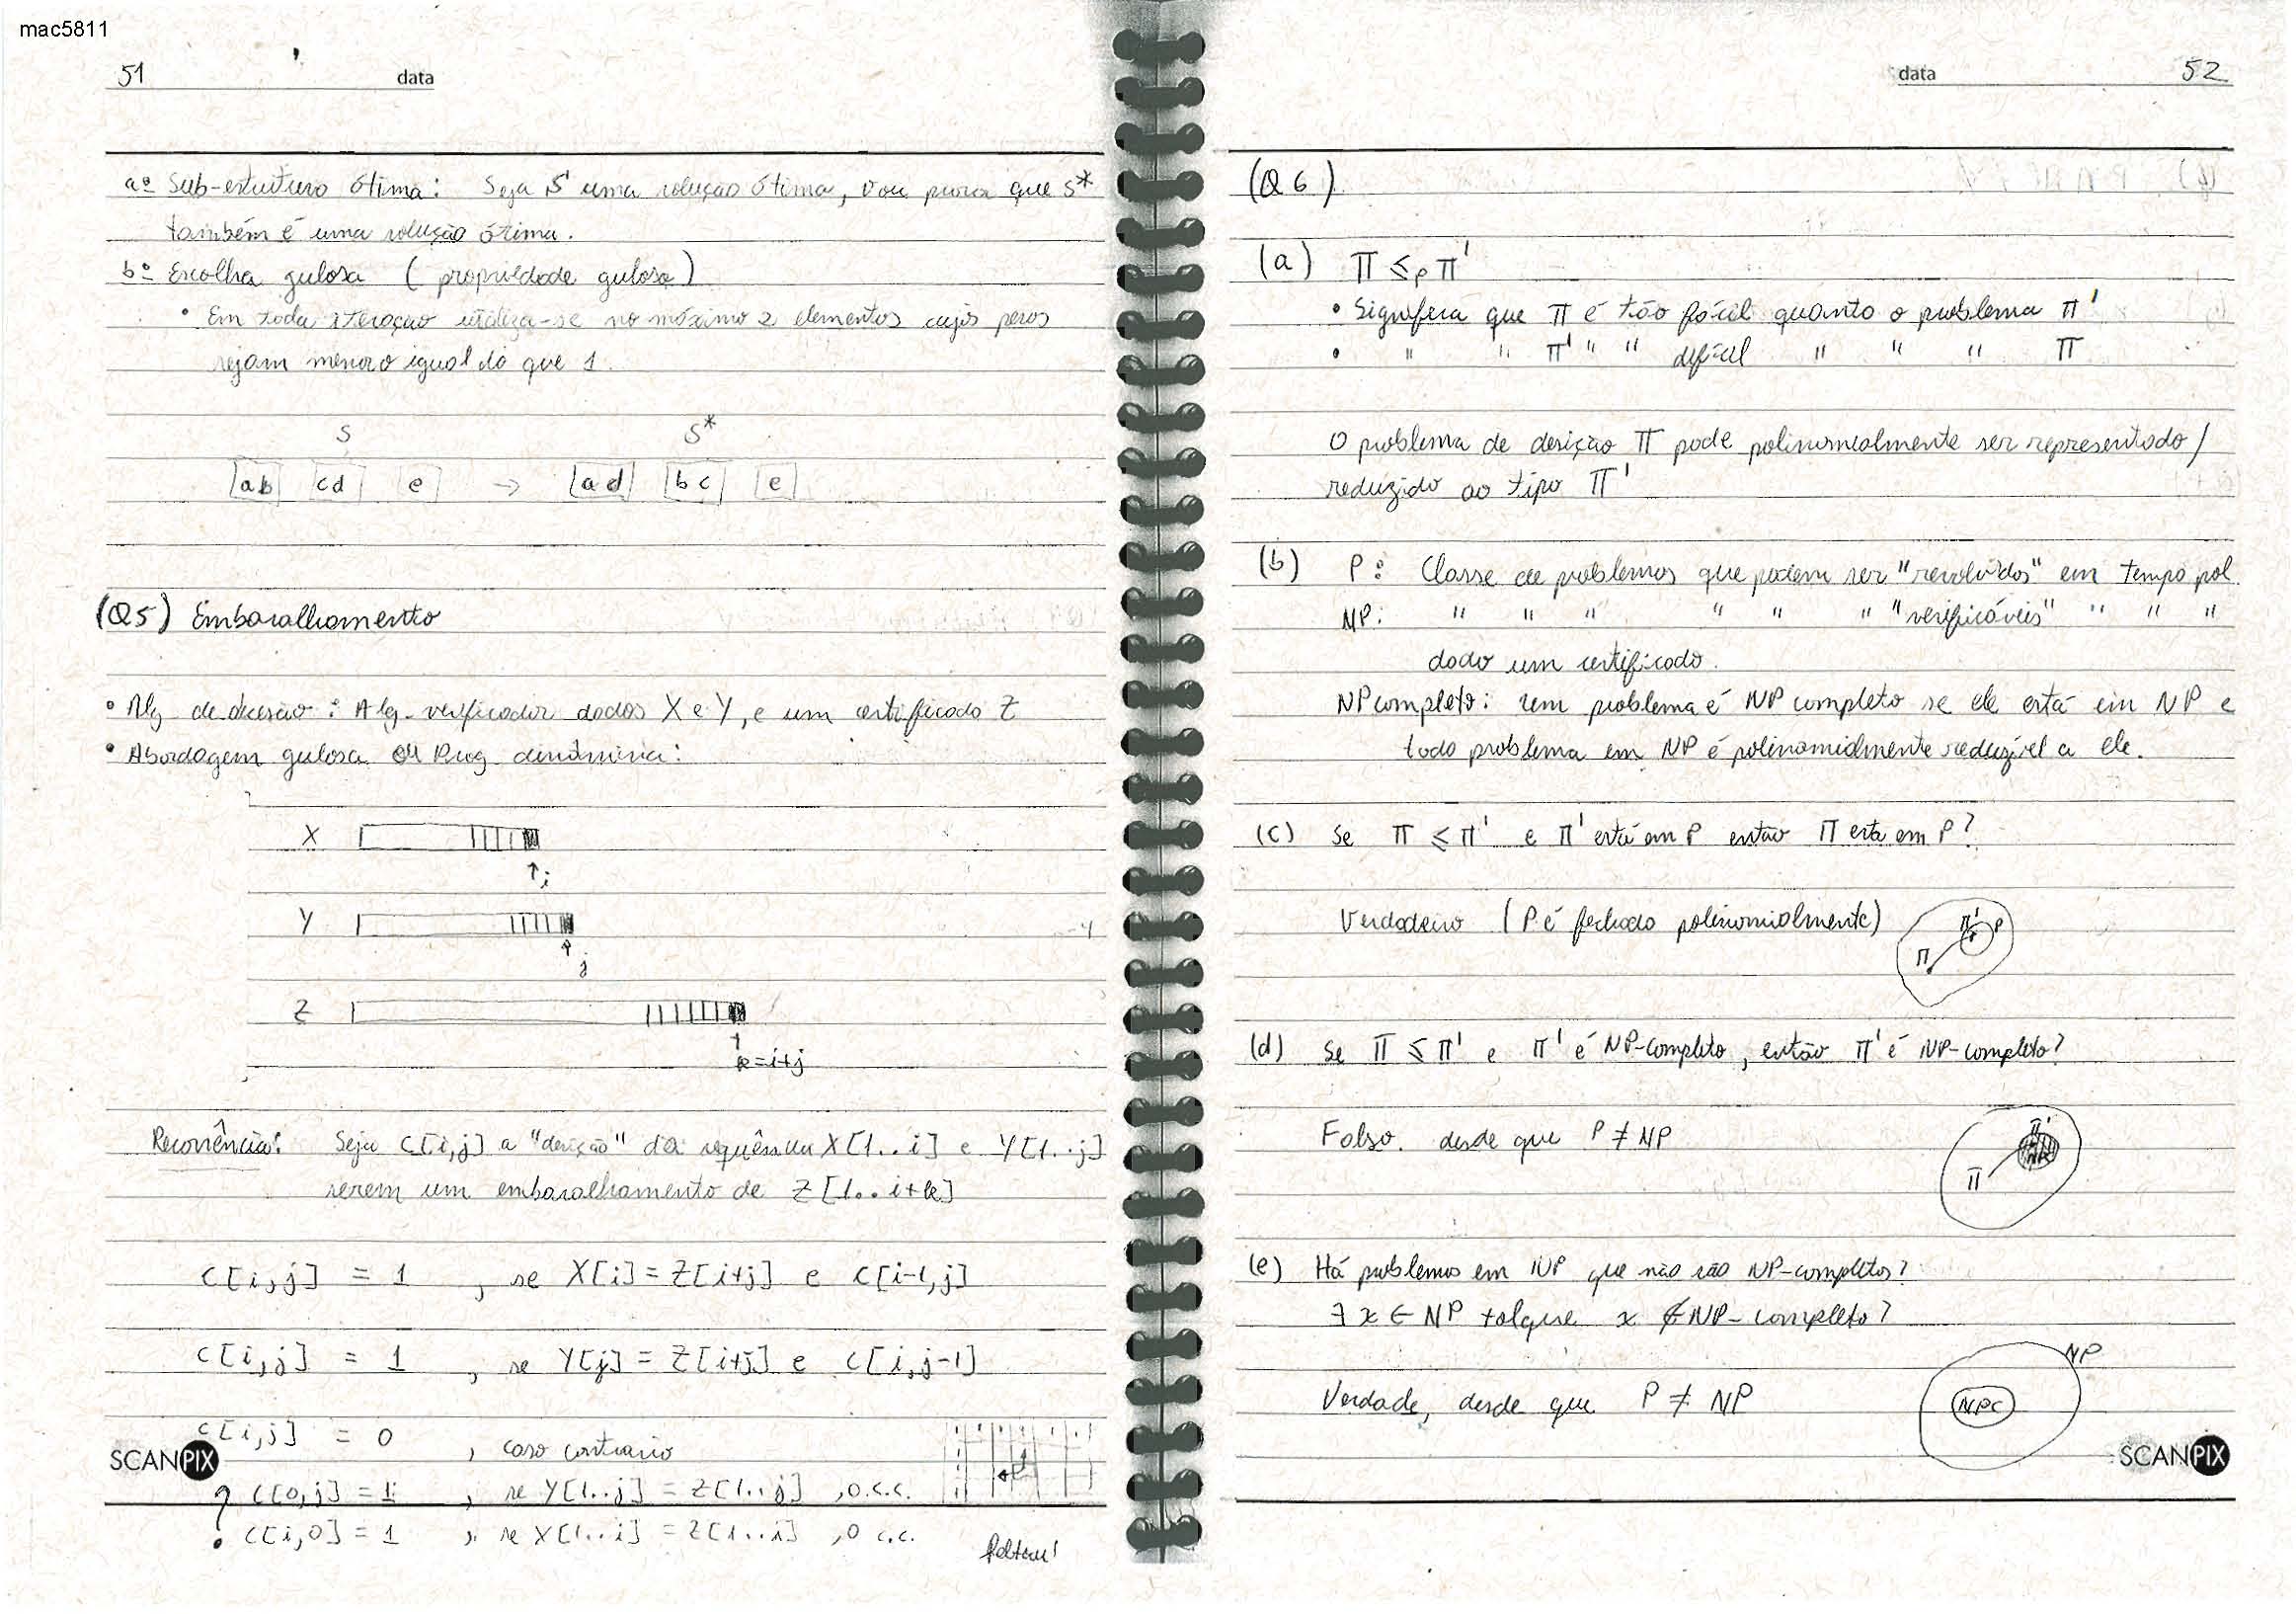 mac5811
51 data
aº Sub-estrutura ótima: Seja S uma solução ótima, vou provar que S*
também é uma solução ótima.
bº Escolha gulosa (propriedade gulosa)
• Em toda iteração utiliza-se no máximo 2 elementos cujos pesos
sejam menor o igual do que 1.
S S*
ab cd e → ad bc e
(Q5) Embaralhamento
• Alg de decisão: Alg. verificador dados X e Y, e um certificado Z
• Abordagem gulosa ou Prog dinâmica:
X
↑i
Y
↑
j
Z
↑
k=i+j
Recorrência: Seja C[i,j] a "decisão" da sequência X[1..i] e Y[1..j]
serem um embaralhamento de Z[1..i+k]
C[i,j] = 1 , se X[i]=Z[i+j] e C[i-1,j]
C[i,j] = 1 , se Y[j] = Z[i+j] e C[i,j-1]
C[i,j] = 0 , caso contrario
C[0,j] = 1 , se Y[1..j] = Z[1..j] , 0 c.c.
C[i,0] = 1 , se X[1..i] = Z[1..i] , 0 c.c.
SCANPIX
data 52
(Q6)
(a) Π ≤p Π'
• Significa que Π é tão fácil quanto o problema Π'
• " " Π' " " difícil " " " Π
O problema de decisão Π pode polinomialmente ser representado/
reduzido ao tipo Π'
(b) P: Classe de problemas que podem ser "resolvidos" em tempo pol.
NP: " " " " " " "verificáveis" " " "
dado um certificado.
NP completo: um problema é NP completo se ele está em NP e
todo problema em NP é polinomialmente reduzível a ele.
(c) Se Π ≤ Π' e Π' está em P então Π esta em P?
Verdadeiro (P é fechado polinomialmente)
Π' P
Π
(d) Se Π ≤ Π' e Π' é NP-completo, então Π' é NP-completo?
Falso. desde que P ≠ NP
Π'
Π
(e) Há problemas em NP que não são NP-completos?
∃ x ∈ NP tal que x ∉ NP-completo?
NP
Verdade, desde que P ≠ NP
NPC
SCANPIX